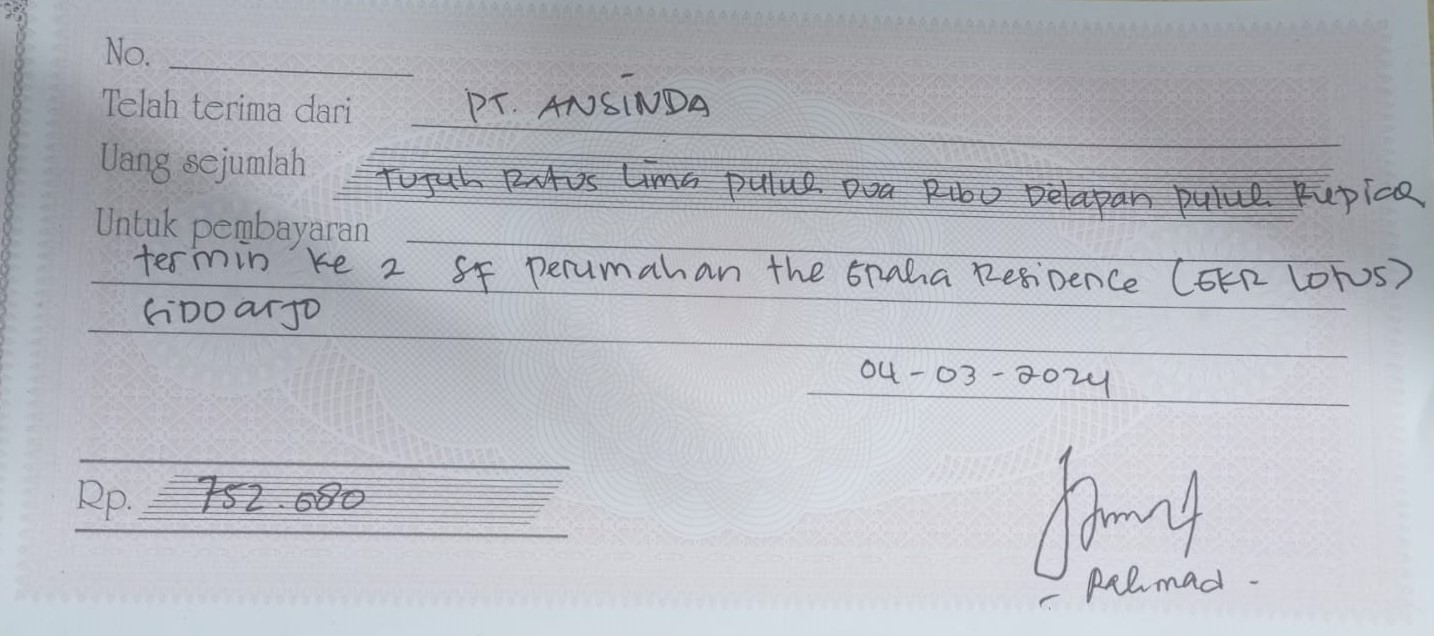 No.
Telah terima dari PT. ANSINDA
Uang sejumlah Tujuh Ratus Lima puluh Dua Ribu Delapan puluh Rupiah
Untuk pembayaran
termin ke 2 SF perumahan the Graha Residence (GKR Lotus)
SiDoarjo
04-03-2024
Rp. 752.080
- Rahmad -